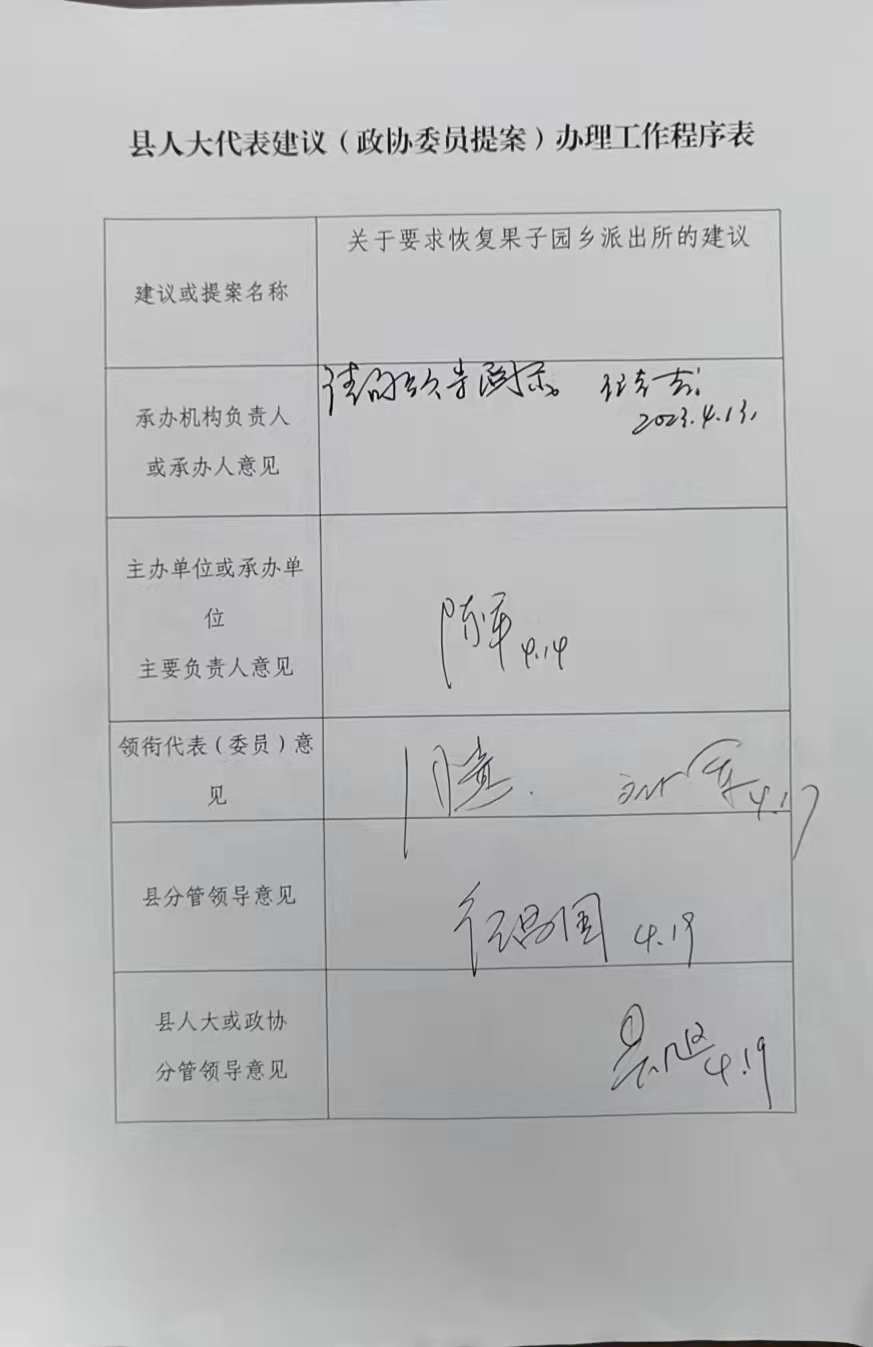 县人大代表建议（政协委员提案）办理工作程序表
建议或提案名称
关于要求恢复果子园乡派出所的建议
承办机构负责人
或承办人意见
请
2023.4.13.
主办单位或承办单
位
主要负责人意见
陈军 4.14
领衔代表（委员）意
见
4.17
县分管领导意见
4.19
县人大或政协
分管领导意见
4.19